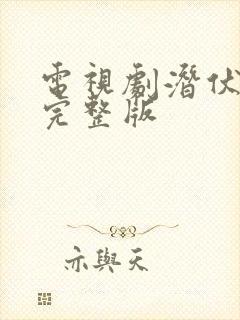 電視劇潛伏
完整版
亦與天